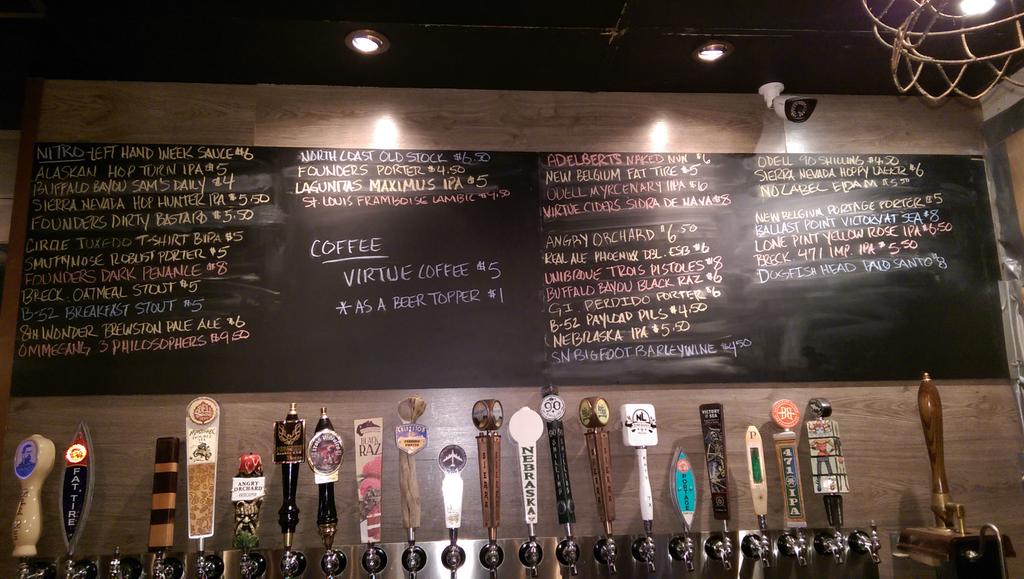 NITRO-LEFT HAND WEEK SAUCE $6
ALASKAN HOP TURN IPA $5
BUFFALO BAYOU SAM'S DAILY $4
SIERRA NEVADA HOP HUNTER IPA $5.50
FOUNDERS DIRTY BASTARD $5.50
CIRCLE TUXEDO T-SHIRT BIPA $5
SMUTTYNOSE ROBUST PORTER $5
FOUNDERS DARK PENANCE $8
BRECK. OATMEAL STOUT $5
B-52 BREAKFAST STOUT $5
8TH WONDER BREWSTON PALE ALE $6
OMMEGANG 3 PHILOSOPHERS $9.50
NORTH COAST OLD STOCK $6.50
FOUNDERS PORTER $4.50
LAGUNITAS MAXIMUS IPA $5
ST. LOUIS FRAMBOISE LAMBIC $4.50
COFFEE
VIRTUE COFFEE $5
*AS A BEER TOPPER $1
ADELBERTS NAKED NUN $6
NEW BELGIUM FAT TIRE $5
ODELL MYRCENARY IIPA $6
VIRTUE CIDERS SIDRA DE NAVA $8
ANGRY ORCHARD $6.50
REAL ALE PHOENIX DBL. ESB $6
UNIBROUE TROIS PISTOLES $8
BUFFALO BAYOU BLACK RAZ $6
G.I. PERDIDO PORTER $6
B-52 PAYLOAD PILS $4.50
NEBRASKA IPA $5.50
SN BIGFOOT BARLEYWINE $4.50
ODELL 90 SHILLING $4.50
SIERRA NEVADA HOPPY LAGER $6
NO LABEL EDAM $5.50
NEW BELGIUM PORTAGE PORTER $5
BALLAST POINT VICTORY AT SEA $8
LONE PINT YELLOW ROSE IPA $6.50
BRECK 471 IMP. IPA $5.50
DOGFISH HEAD PALO SANTO $8
FAT TIRE
ANGRY
ORCHARD
BLACK
RAZ
NEBRASKA
90
NL
VICTORY
AT SEA
PORTAGE
471 IPA